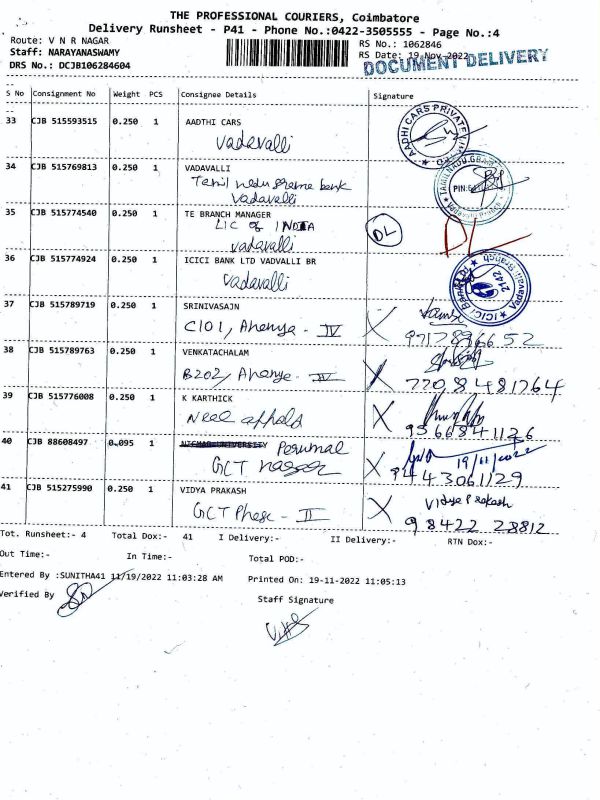 THE PROFESSIONAL COURIERS, Coimbatore
Delivery Runsheet - P41 - Phone No.:0422-3505555 - Page No.:4
Route: V N R NAGAR
RS No.: 1062846
Staff: NARAYANASWAMY
RS Date: 19 Nov 2022
DRS No.: DCJB106284604
DOCUMENT DELIVERY
S No Consignment No Weight PCS Consignee Details Signature
33 CJB 515593515 0.250 1 AADTHI CARS
Vadavalli
AADHI CARS PRIVATE
34 CJB 515769813 0.250 1 VADAVALLI
Tamil nadu grama bank
Vadavalli
TAMILNADU GRAMA
PIN:
35 CJB 515774540 0.250 1 TE BRANCH MANAGER
LIC of INDIA
Vadavalli
DL
36 CJB 515774924 0.250 1 ICICI BANK LTD VADVALLI BR
Vadavalli
ICICI Bank Ltd
2142
Vadavalli Branch
37 CJB 515789719 0.250 1 SRINIVASAJN
C101, Ananya - IV
X 9717896652
38 CJB 515789763 0.250 1 VENKATACHALAM
B202, Ananya - IV
X 7708481764
39 CJB 515776008 0.250 1 K KARTHICK
X 9566841176
40 CJB 88608497 0.095 1 Perumal
GCT nagar
19/11/2022
X 9443061129
41 CJB 515275990 0.250 1 VIDYA PRAKASH
GCT Phase - II
X Vidya Prakash
98422 28812
Tot. Runsheet:- 4 Total Dox:- 41 I Delivery:- II Delivery:- RTN Dox:-
Out Time:- In Time:- Total POD:-
Entered By :SUNITHA41 11/19/2022 11:03:28 AM Printed On: 19-11-2022 11:05:13
Verified By
Staff Signature